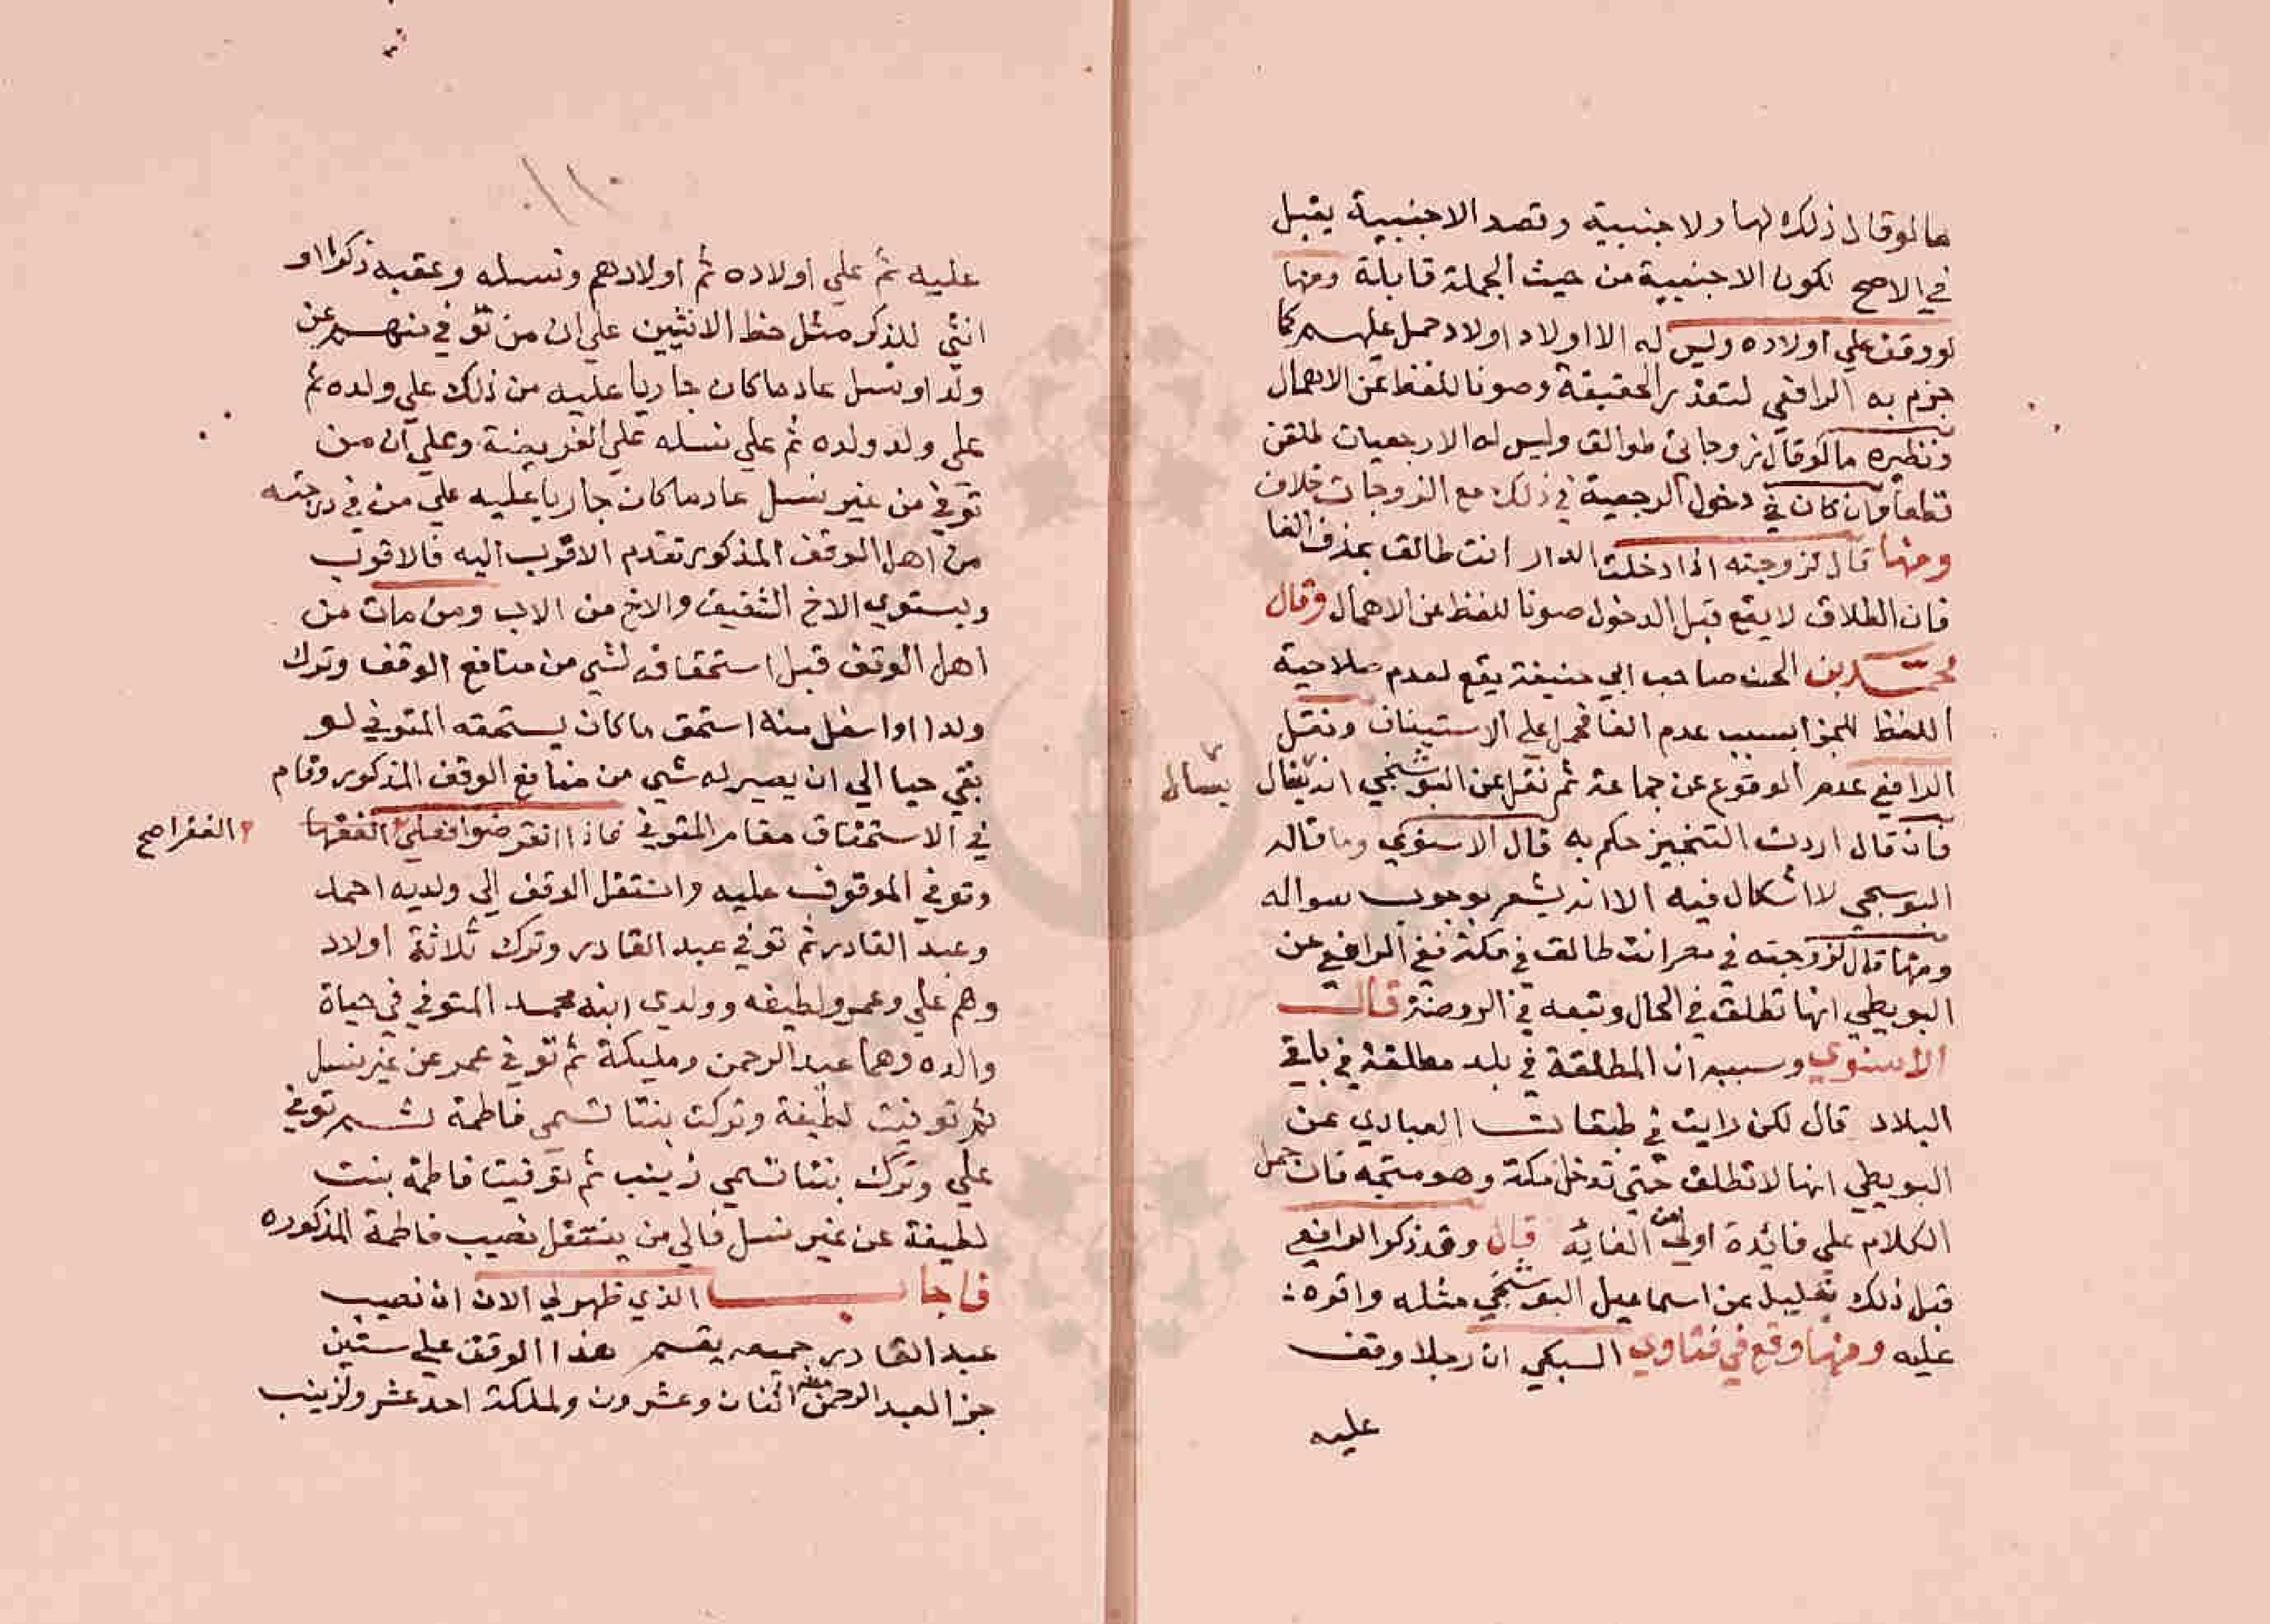 ما لو قال ذلك لها ولاجنبية وقصد الاجنبية يقبل
في الاصح لكون الاجنبية من حيث الجملة قابلة ومنها
لو وقف علي اولاده وليس له الا اولاد اولاد حمل عليهم كما
جزم به الرافعي لتعذر الحقيقة وصونا للفظ عن الاهمال
ونظيره ما لو قال زوجاتي طوالق وليس له الا رجعيات طلقن
قطعا وان كان في دخول الرجعية في ذلك مع الزوجات خلاف
ومنها قال لزوجته اذا دخلت الدار انت طالق بحذف الفا
فان الطلاق لا يقع قبل الدخول صونا للفظ عن الاهمال وقال
محمد بن الحسن صاحب ابي حنيفة يقع لعدم صلاحية
اللفظ للجزا بسبب عدم الفا فحمل علي الاستيناف ونقل
الرافعي عدم الوقوع عن جماعة ثم نقل عن البوشنجي انه يقال
يسال
فان قال اردت التنجيز حكم به قال الاسنوي وما قاله
البوسنجي لا اشكال فيه الا انه يشعر بوجوب سواله
ومنها قال لزوجته في مصر انت طالق في مكة ففي الرافعي عن
البويطي انها تطلق في الحال وتبعه في الروضة قال
الاسنوي وسببه ان المطلقة في بلد مطلقة في باقي
البلاد قال لكن رايت في طبقات العبادي عن
البويطي انها لا تطلق حتي تدخل مكة وهو متجه فان حمل
الكلام علي فائدة اولي من الغائه قال وقد ذكر الرافعي
قبل ذلك بقليل عن اسماعيل البوشنجي مثله واقره
عليه ومنها وقع في فتاوي السبكي ان رجلا وقف
عليه
عليه ثم علي اولاده ثم اولادهم ونسله وعقبه ذكرا او
انثي للذكر مثل حظ الانثيين علي ان من توفي منهم عن
ولد او نسل عاد ما كان جاريا عليه من ذلك علي ولده ثم
علي ولد ولده ثم علي نسله علي الفريضة وعلي ان من
توفي من غير نسل عاد ما كان جاريا عليه علي من في درجته
من اهل الوقف المذكور تقدم الاقرب اليه فالاقرب
ويستوي الاخ الشقيق والاخ من الاب ومن مات من
اهل الوقف قبل استحقاقه لشي من منافع الوقف وترك
ولدا او اسفل منه استحق ما كان يستحقه المتوفي لو
بقي حيا الي ان يصير له شي من منافع الوقف المذكور وقام
في الاستحقاق مقام المتوفي فاذا انقرضوا فعلي الفقها
الفقرا صح
وتوفي الموقوف عليه وانتقل الوقف الي ولديه احمد
وعبد القادر ثم توفي عبد القادر وترك ثلاثة اولاد
وهم علي وعمر ولطيفه وولدي ابنه محمد المتوفي في حياة
والده وهما عبد الرحمن ومليكة ثم توفي عمر عن غير نسل
ثم توفيت لطيفة وتركت بنتا تسمي فاطمة ثم توفي
علي وترك بنتا تسمي زينب ثم توفيت فاطمة بنت
لطيفة عن غير نسل فالي من ينتقل نصيب فاطمة المذكوره
فاجاب الذي ظهر لي الان ان نصيب
عبد القادر جميعه يقسم هذا الوقف علي ستين
جزا لعبد الرحمن منه اثنان وعشرون ولملكة احد عشر ولزينب